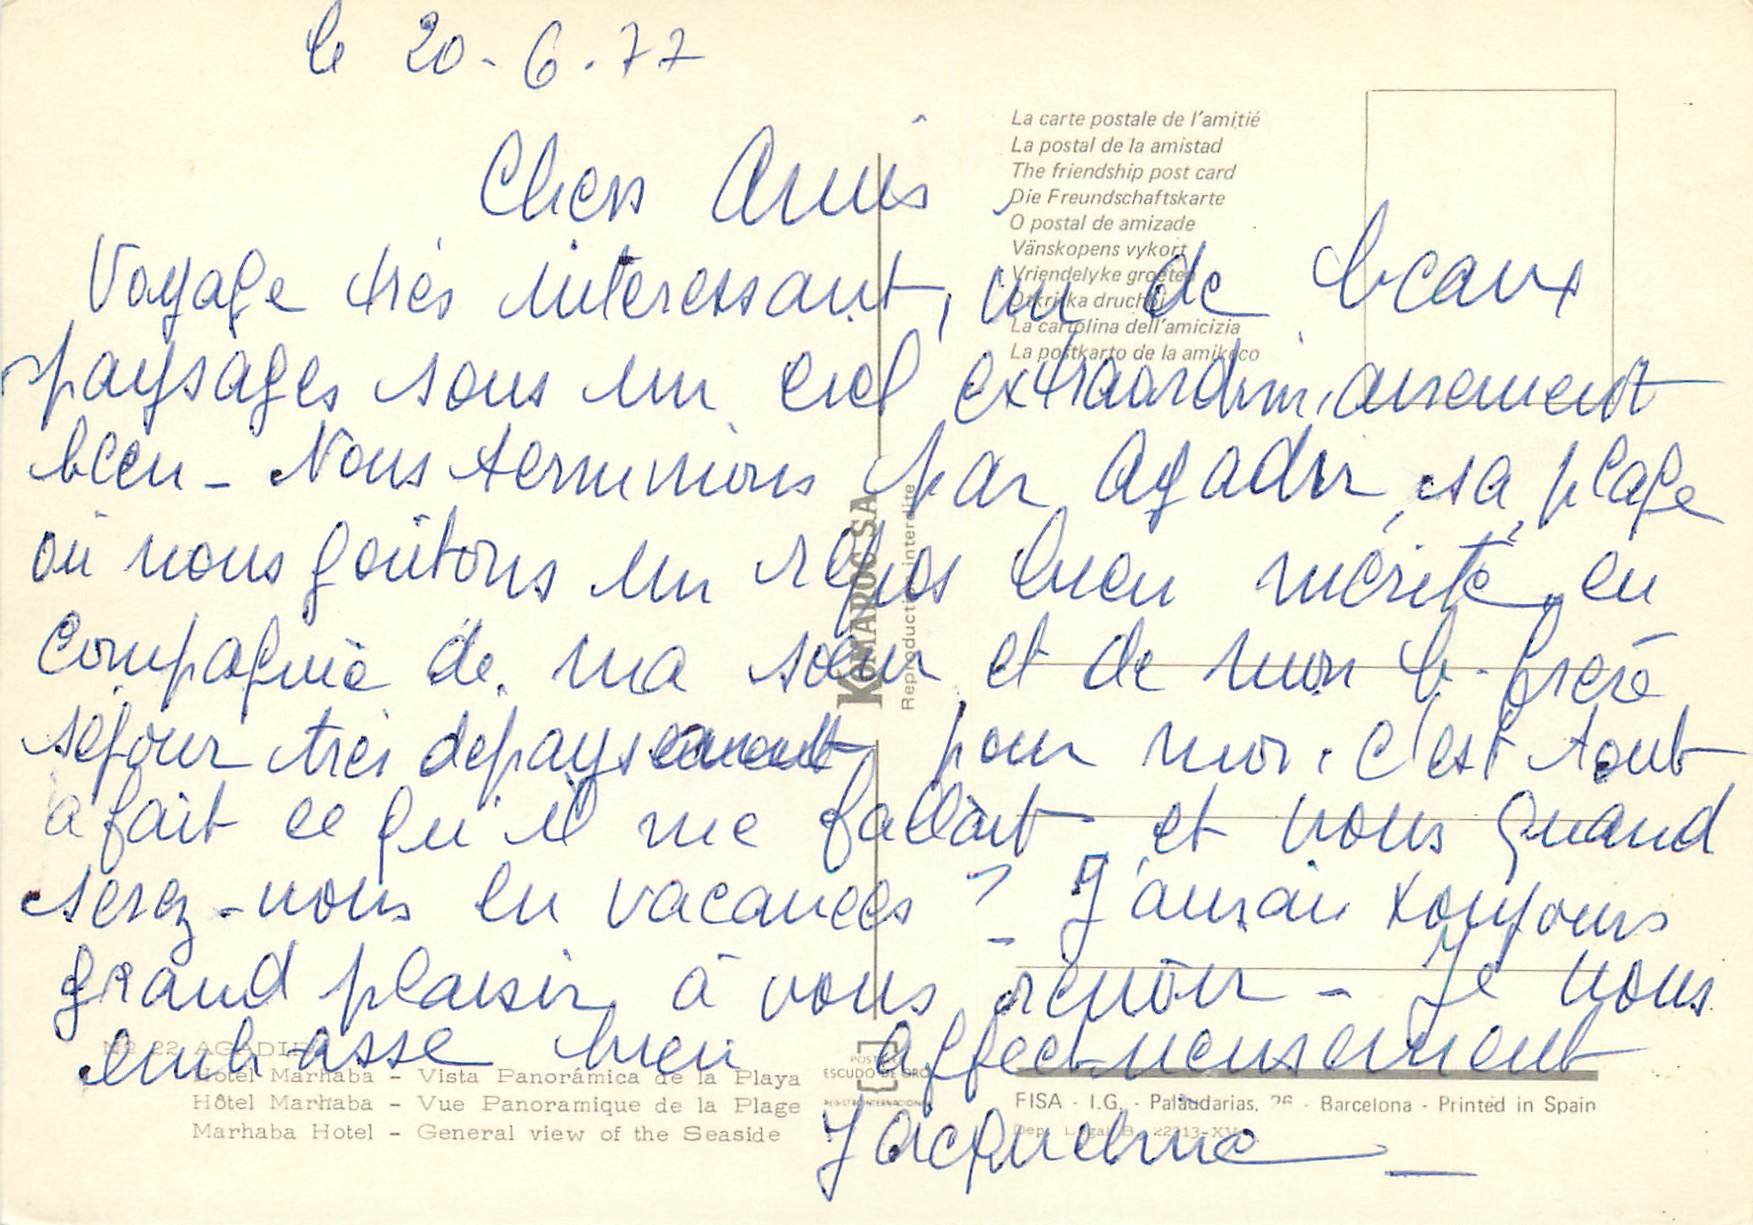 le 20-6.77
Chers Amis
Voyage très intéressant, vu de beaux
paysages sous un ciel extraordinairement
bleu - Nous terminons par Agadir, sa plage
où nous goûtons un repos bien mérité, en
compagnie de ma soeur et de mon b-frère
séjour très dépaysant pour moi. c'est tout
à fait ce qu'il me fallait et vous quand
serez-vous en vacances ? J'aurai toujours
grand plaisir à vous revoir - Je vous
embrasse bien affectueusement
Jacqueline
La carte postale de l'amitié
La postal de la amistad
The friendship post card
Die Freundschaftskarte
O postal de amizade
Vänskopens vykort
Vriendelyke groeten
La cartolina dell'amicizia
La postkarto de la amikeco
KOMAROC SA
Reproduction interdite
Nº 22 AGADIR
Hotel Marhaba - Vista Panorámica de la Playa
Hôtel Marhaba - Vue Panoramique de la Plage
Marhaba Hotel - General view of the Seaside
POSTAL
ESCUDO DE ORO
FISA - I.G. - Palaudarias, 26 - Barcelona - Printed in Spain